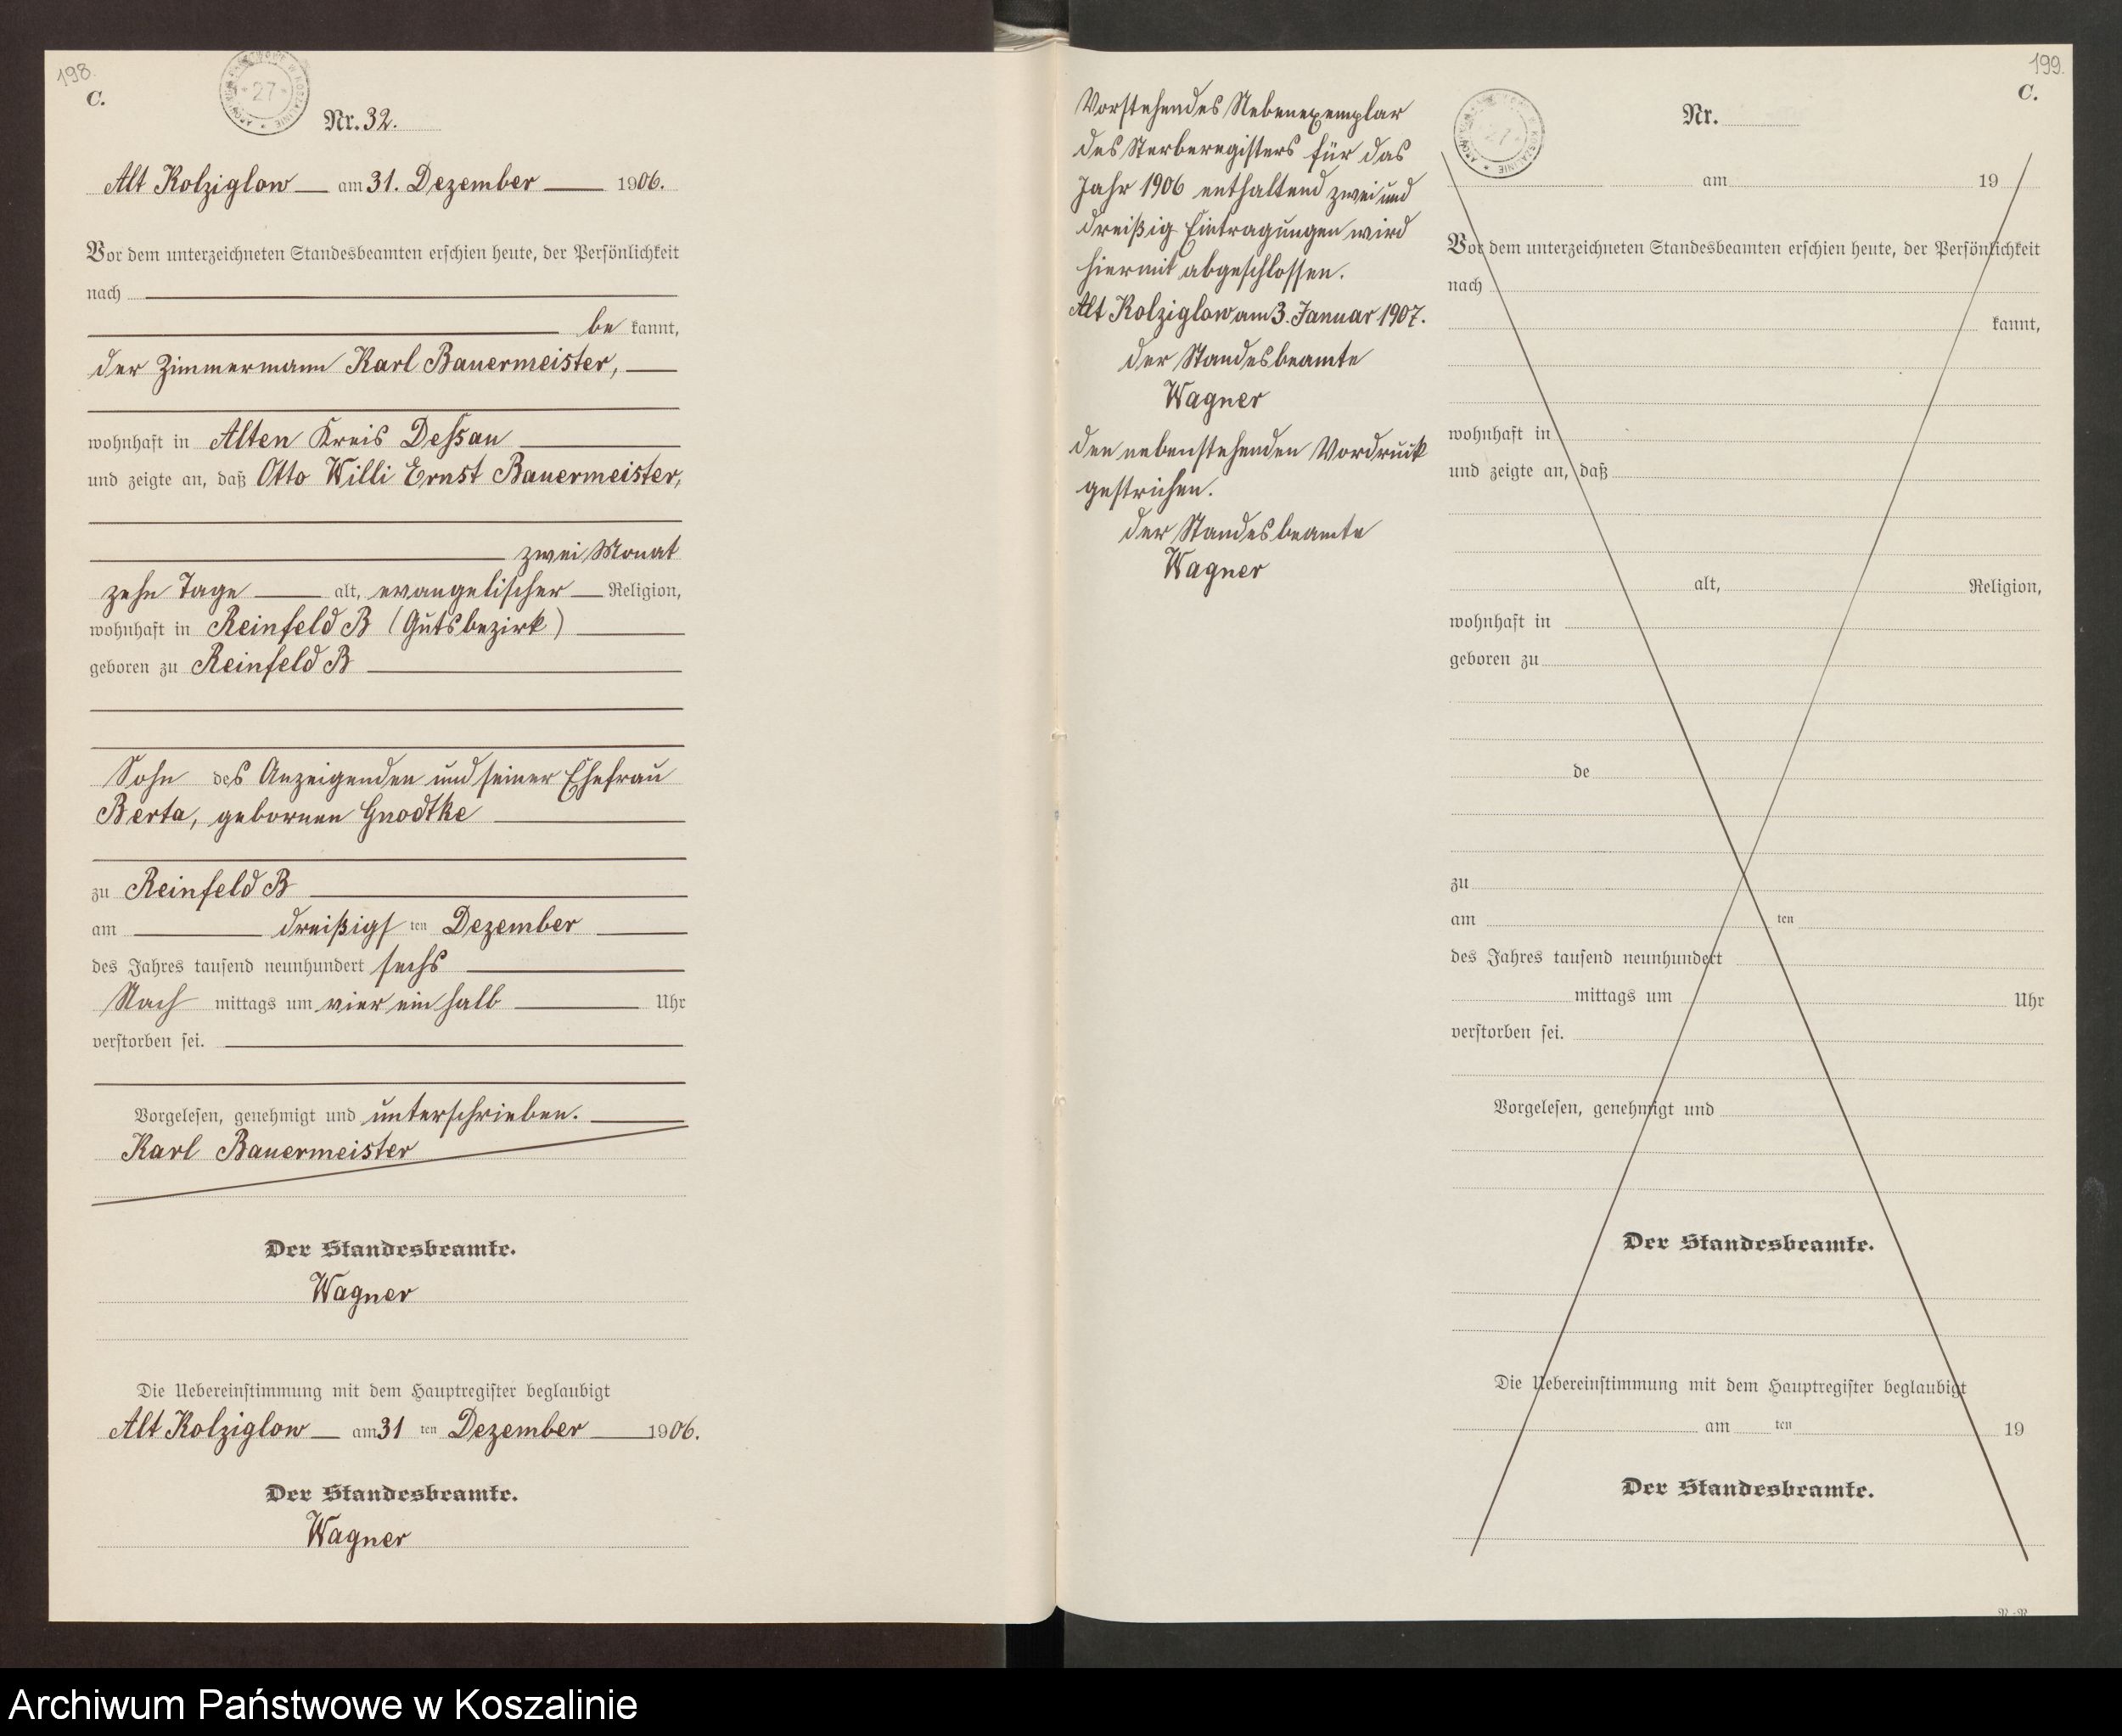 198.
C.
27
Nr. 32.
Alt Kolziglow am 31. Dezember 1906.
Vor dem unterzeichneten Standesbeamten erschien heute, der Persönlichkeit
nach
be kannt,
der Zimmermann Karl Bauermeister,
wohnhaft in Alten Kreis Dessau
und zeigte an, daß Otto Willi Ernst Bauermeister,
zwei Monat
zehn Tage alt, evangelischer Religion,
wohnhaft in Reinfeld B (Gutsbezirk)
geboren zu Reinfeld B
Sohn des Anzeigenden und seiner Ehefrau
Berta, gebornen Gnodtke
zu Reinfeld B
am dreißigsten Dezember
des Jahres tausend neunhundert sechs
Nach mittags um vier ein halb Uhr
verstorben sei.
Vorgelesen, genehmigt und unterschrieben.
Karl Bauermeister
Der Standesbeamte.
Wagner
Die Uebereinstimmung mit dem Hauptregister beglaubigt
Alt Kolziglow am 31 ten Dezember 1906.
Der Standesbeamte.
Wagner
Vorstehendes Nebenexemplar
des Sterberegisters für das
Jahr 1906 enthaltend zwei und
dreißig Eintragungen wird
hiermit abgeschlossen.
Alt Kolziglow am 3. Januar 1907.
der Standesbeamte
Wagner
den nebenstehenden Vordruck
gestrichen.
der Standesbeamte
Wagner
199.
C.
27
Nr.
am 19
Vor dem unterzeichneten Standesbeamten erschien heute, der Persönlichkeit
nach
kannt,
wohnhaft in
und zeigte an, daß
alt, Religion,
wohnhaft in
geboren zu
de
zu
am ten
des Jahres tausend neunhundert
mittags um Uhr
verstorben sei.
Vorgelesen, genehmigt und
Der Standesbeamte.
Die Uebereinstimmung mit dem Hauptregister beglaubigt
am ten 19
Der Standesbeamte.
Archiwum Państwowe w Koszalinie